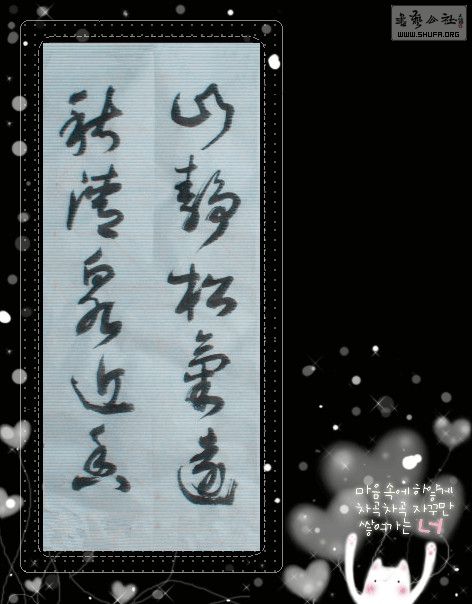 書藝公社
WWW.SHUFA.ORG
山靜松氣遠
秋清泉近香
마음속에 하얗게
차곡차곡 자꾸만
쌓여가는 너